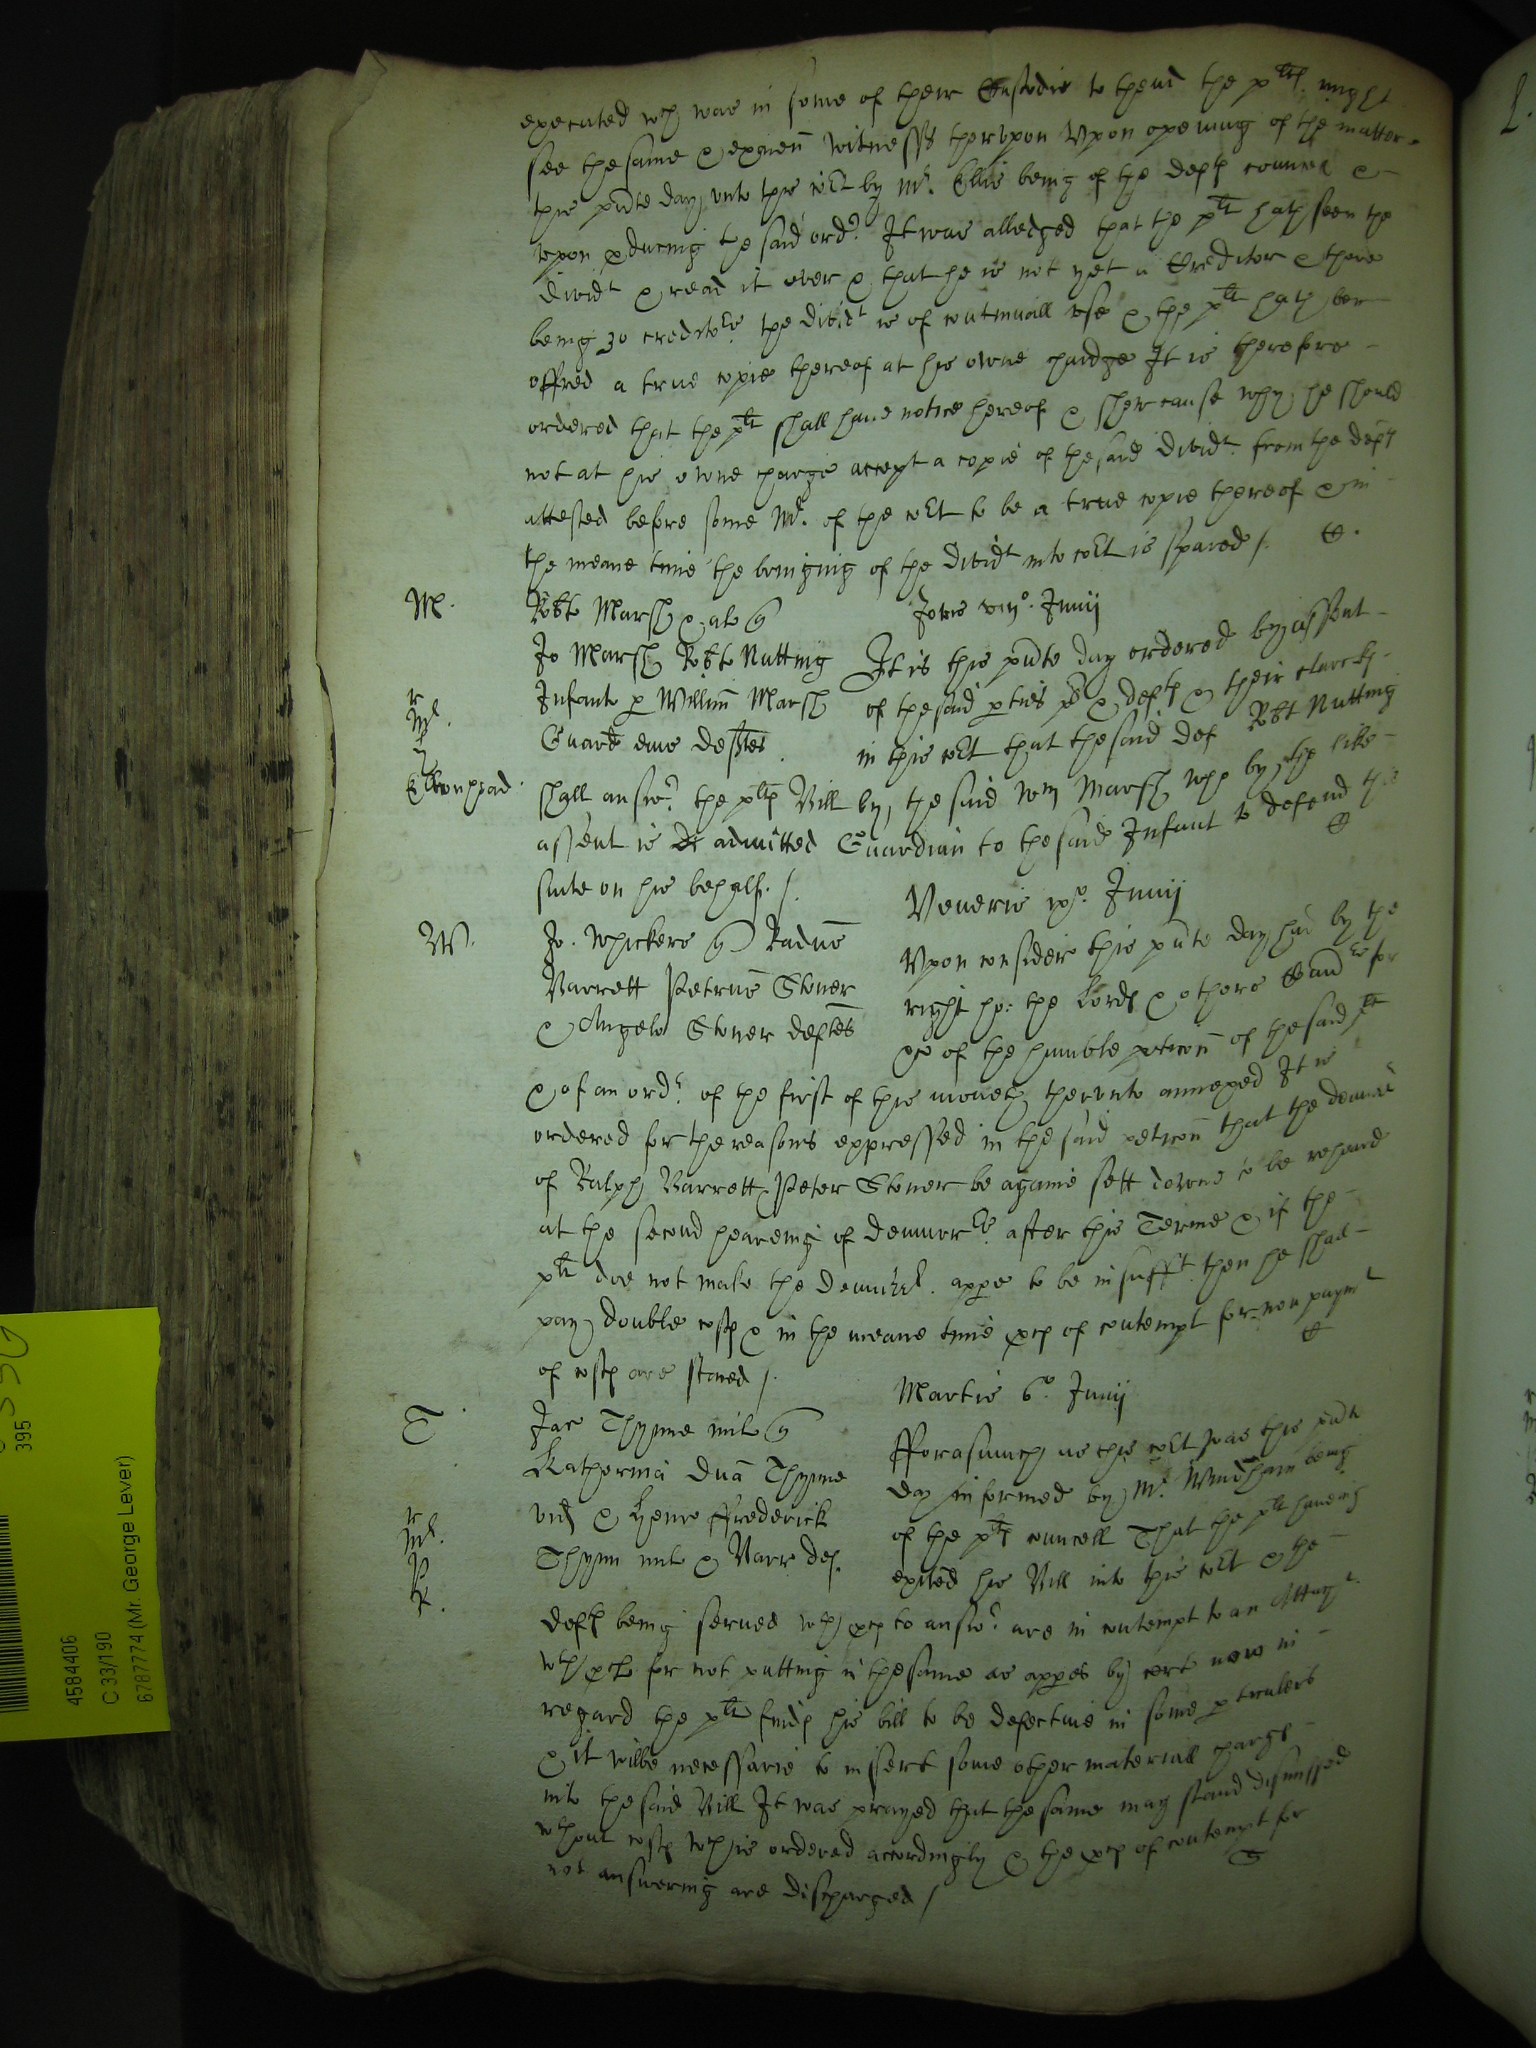 executed wch was in some of their Custodie to thend the plts. might
see the same & examen witnesses therupon Upon opening of the matter
this pnte day unto this cort by Mr. Ellis being of the defts councel &
upon pducing the said ordr. It was alledged that the plt hath seen the
dividt & read it over & that he is not yet a Creditor & there
being 30 creditors the dividt is of continuall use & the plt hath ben
offred a true copie thereof at his owne chardge It is therefore
ordered that the plt shall have notice hereof & shew cause why he should
not at his owne charge accept a copie of the said dividt. from the defts
attested before some Mr. of the cort to be a true copie thereof & in
the meane time the bringing of the dividt into cort is spared /.
M. Robto Marsh & al q Jovis viijo. Junij
Jo Marsh Robto Nutting It is this pnte day ordered by assent
Infant p Willim Marsh of the said pties pl & defts & their clarcks
Guard eius deftes in this cort that the said def Robt Nutting
shall answr. the plts Bill by the said Wm Marsh who by the like
assent is admitted Guardian to the said Infant to defend the
suite on his behalf. /.
Veneris ixo. Junij
W. Jo. Whickers q Radus Upon consider this pnte day had by the
Barrett Petrus Stoner right ho: the Lords & others
& Angelo Stoner deftes of the humble peticon of the said plt
& of an ordr. of the first of this moneth therunto annexed It is
ordered for the reasons expressed in the said peticon that the demrer
of Ralph Barrett Peter Stoner be againe sett downe to be reheard
at the second heareing of demurrers after this Terme & if the
plt doe not make the demurrer. appe to be insufft. then he shall
pay double costs & in the meane time pces of contempt for non paymt
of costs are stayed /.
Martis 6o. Junij
T Jac Thynne mil q fforasmuch as this cort was this pnte
Katherina dna Thynne day informed by Mr. Windham being
vid & Henr ffrederick of the plts councell That the plt haveing
Thynn mil & Barr def. exited his Bill into this cort & the
defts being served wth pces to answr. are in contempt to an Attachmt.
wth pcl for not putting in the same as appes by cert now in
regard the plt finds his bill to be defective in some pticulers
& it wilbe necessarie to insert some other materiall charge
into the said Bill It was prayed that the same may stand dismissed
wthout costs wch is ordered accordingly & the pces of contempt for
not answering are discharged /
395
4584406
C 33/190
6787774 (Mr. George Lever)